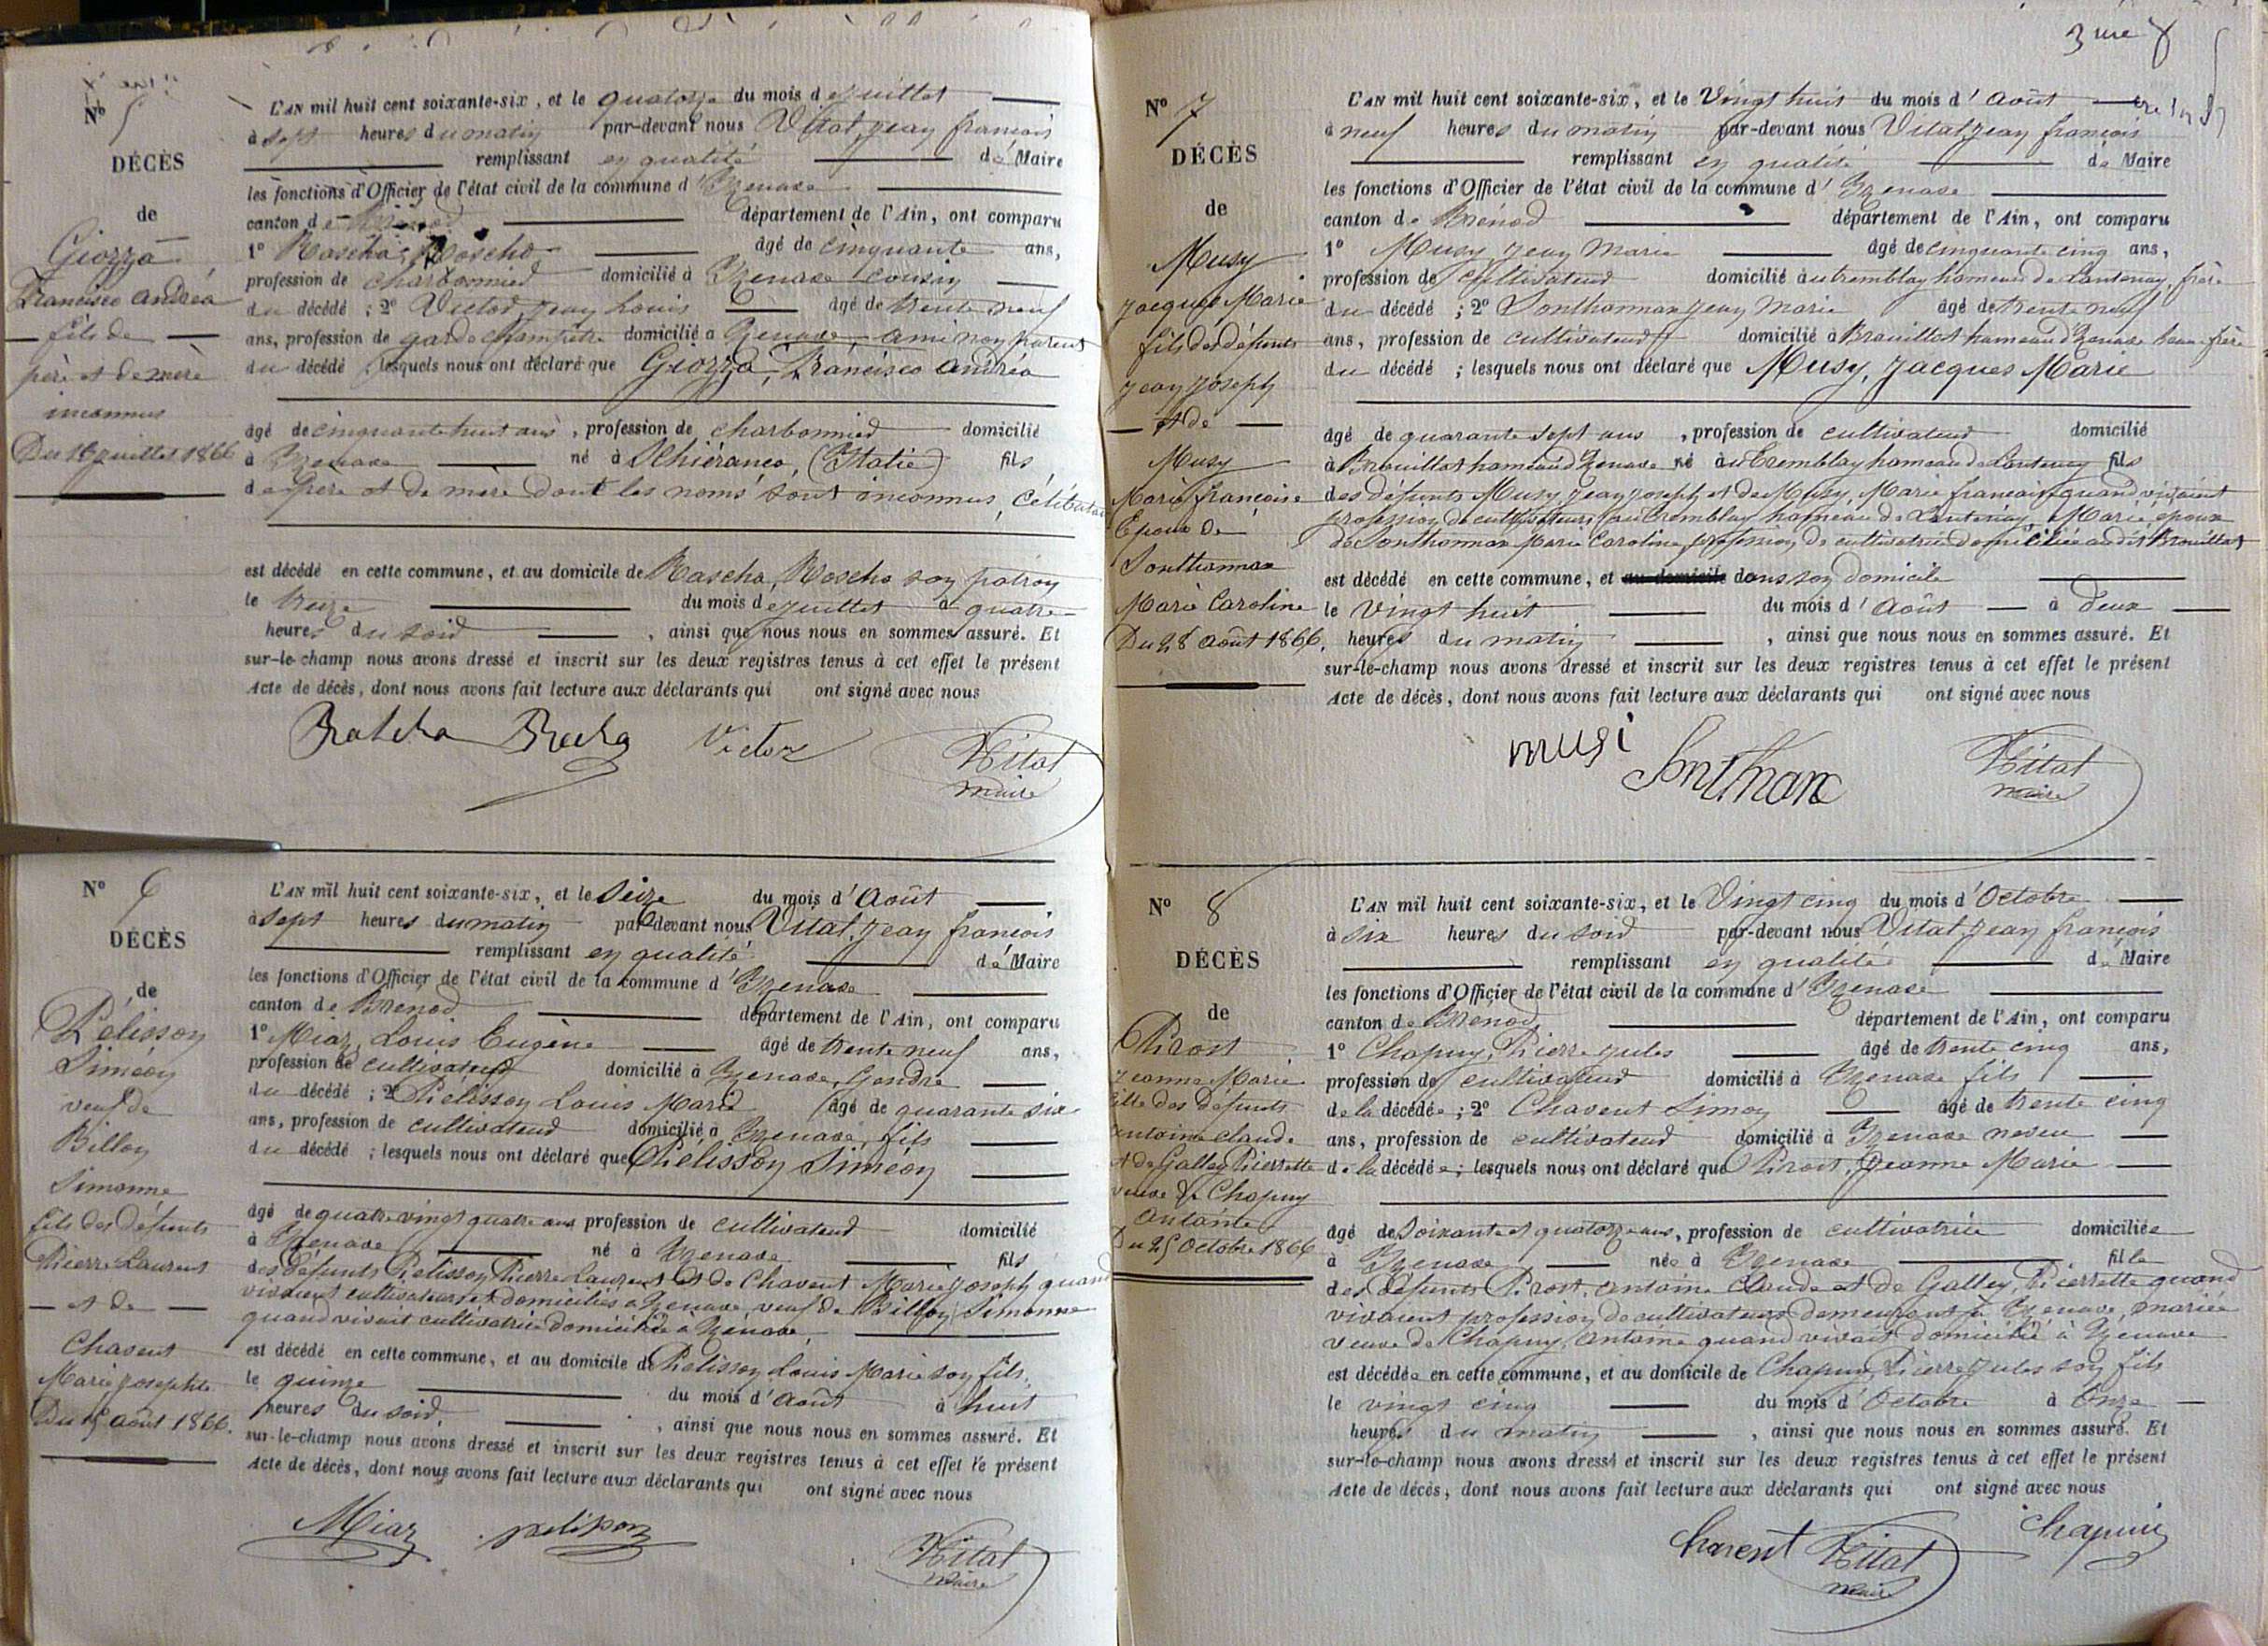 N° 5
DÉCÈS
de
Giozza
Francisco andréa
fils de
père et de mère
inconnus
Du 13 juillet 1866
L'AN mil huit cent soixante-six, et le quatorze du mois de juillet
à sept heures du matin par-devant nous Vital, jean françois
remplissant en qualité de Maire
les fonctions d'Officier de l'état civil de la commune d'Izenave
canton de Brénod département de l'Ain, ont comparu
1° Rascha, Roscho âgé de cinquante ans,
profession de charbonnier domicilié à Izenave cousin
du décédé ; 2° Victor, jean Louis âgé de trente neuf
ans, profession de garde champêtre domicilié à Izenave, ami non parent
du décédé lesquels nous ont déclaré que Giozza, Francisco andréa
âgé de cinquante huit ans, profession de charbonnier domicilié
à Izenave né à Schieranco, (Italie) fils
de père et de mère dont les noms sont inconnus, Célibataire
est décédé en cette commune, et au domicile de Rascha, Roscho son patron
le treize du mois de juillet à quatre
heures du soir, ainsi que nous nous en sommes assuré. Et
sur-le-champ nous avons dressé et inscrit sur les deux registres tenus à cet effet le présent
Acte de décès, dont nous avons fait lecture aux déclarants qui ont signé avec nous
Victor Vital
maire
N° 6
DÉCÈS
de
Pélisson
Siméon
veuf de
Billon
Simonne
fils des défunts
Pierre Laurent
et de
Chavent
Marie josephte
Du 15 août 1866.
L'AN mil huit cent soixante-six, et le Seize du mois d'Août
à sept heures du matin par-devant nous Vital, jean françois
remplissant en qualité de Maire
les fonctions d'Officier de l'état civil de la commune d'Izenave
canton de Brenod département de l'Ain, ont comparu
1° Miaz, Louis Eugène âgé de trente neuf ans,
profession de cultivateur domicilié à Izenave, Gendre
du décédé ; 2° Pélisson Louis Marie âgé de quarante six
ans, profession de cultivateur domicilié à Izenave, fils
du décédé ; lesquels nous ont déclaré que Pelisson Siméon
âgé de quatre vingt quatre ans profession de cultivateur domicilié
à Izenave né à Izenave fils
des défunts Pelisson, Pierre Laurent et de Chavent Marie joseph quand
vivaient cultivateurs et domiciliés à Izenave veuf de Billon, Simonne
quand vivait cultivatrice domiciliée à Izénave,
est décédé en cette commune, et au domicile de Pelisson Louis Marie son fils,
le quinze du mois d'Août à huit
heures du soir, ainsi que nous nous en sommes assuré. Et
sur-le-champ nous avons dressé et inscrit sur les deux registres tenus à cet effet le présent
Acte de décès, dont nous avons fait lecture aux déclarants qui ont signé avec nous
Miaz pelisson Vital
maire
3me f
N° 7
DÉCÈS
de
Musy
jacques Marie
fils des défunts
jean joseph
et de
Musy
Marie françoise
Epoux de
Sonthonnax
Marie Caroline
Du 28 août 1866.
L'AN mil huit cent soixante-six, et le Vingt huit du mois d'Août
à neuf heures du matin par-devant nous Vital, jean françois
remplissant en qualité de Maire
les fonctions d'Officier de l'état civil de la commune d'Izenave
canton de Brénod département de l'Ain, ont comparu
1° Musy, jean Marie âgé de cinquante cinq ans,
profession de cultivateur domicilié au tremblay hameau de Lantenay, frère
du décédé ; 2° Sonthonnax jean Marie âgé de trente neuf
ans, profession de cultivateur domicilié à Brouillat hameau d'Izenave beau-frère
du décédé ; lesquels nous ont déclaré que Musy, jacques Marie
âgé de quarante sept ans, profession de cultivateur domicilié
à Brouillat hameau d'Izenave né au tremblay hameau de Lantenay fils
des défunts Musy, jean joseph et de Musy, Marie françoise quand vivaient
profession de cultivateurs au tremblay hameau de Lantenay, Marié, époux
de Sonthonnax Marie Caroline profession de cultivatrice domiciliée audit Brouillat
est décédé en cette commune, et au domicile dans son domicile
le Vingt huit du mois d'Août à deux
heures du matin, ainsi que nous nous en sommes assuré. Et
sur-le-champ nous avons dressé et inscrit sur les deux registres tenus à cet effet le présent
Acte de décès, dont nous avons fait lecture aux déclarants qui ont signé avec nous
musi Sonthonax Vital
maire
N° 8
DÉCÈS
de
Pirost
jeanne Marie
fille des défunts
antoine claude
et de Galley Pierrette
veuve de Chapuy
antoine
Du 25 Octobre 1866
L'AN mil huit cent soixante-six, et le Vingt cinq du mois d'Octobre
à six heures du soir par-devant nous Vital, jean françois
remplissant en qualité de Maire
les fonctions d'Officier de l'état civil de la commune d'Izenave
canton de Brénod département de l'Ain, ont comparu
1° Chapuy, Pierre jules âgé de trente cinq ans,
profession de cultivateur domicilié à Izenave fils
de la décédée ; 2° Chavent Simon âgé de trente cinq
ans, profession de cultivateur domicilié à Izenave neveu
de la décédée ; lesquels nous ont déclaré que Pirost, Jeanne Marie
âgé de Soixante et quatorze ans, profession de cultivatrice domiciliée
à Izenave née à Izenave fille
des défunts Pirost, antoine Claude et de Galley, Pierrette quand
vivaient profession de cultivateurs demeurant à Izenave, mariée
veuve de Chapuy, Antoine quand vivait domicilié à Izénave
est décédée en cette commune, et au domicile de Chapuy, Pierre jules son fils
le vingt cinq du mois d'Octobre à Onze
heures du matin, ainsi que nous nous en sommes assuré. Et
sur-le-champ nous avons dressé et inscrit sur les deux registres tenus à cet effet le présent
Acte de décès, dont nous avons fait lecture aux déclarants qui ont signé avec nous
Chavent Vital Chapuis
maire